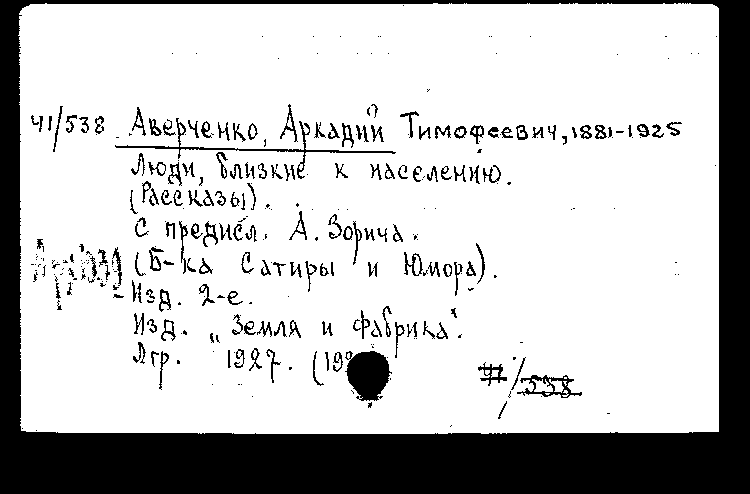 41/538 Аверченко, Аркадий Тимофеевич, 1881-1925
Люди, близкие к населению.
(Рассказы).
С предисл. А. Зорича.
(Б-ка Сатиры и Юмора).
Изд. 2-е.
Изд. „Земля и Фабрика".
Лгр. 1927. (19
41/538